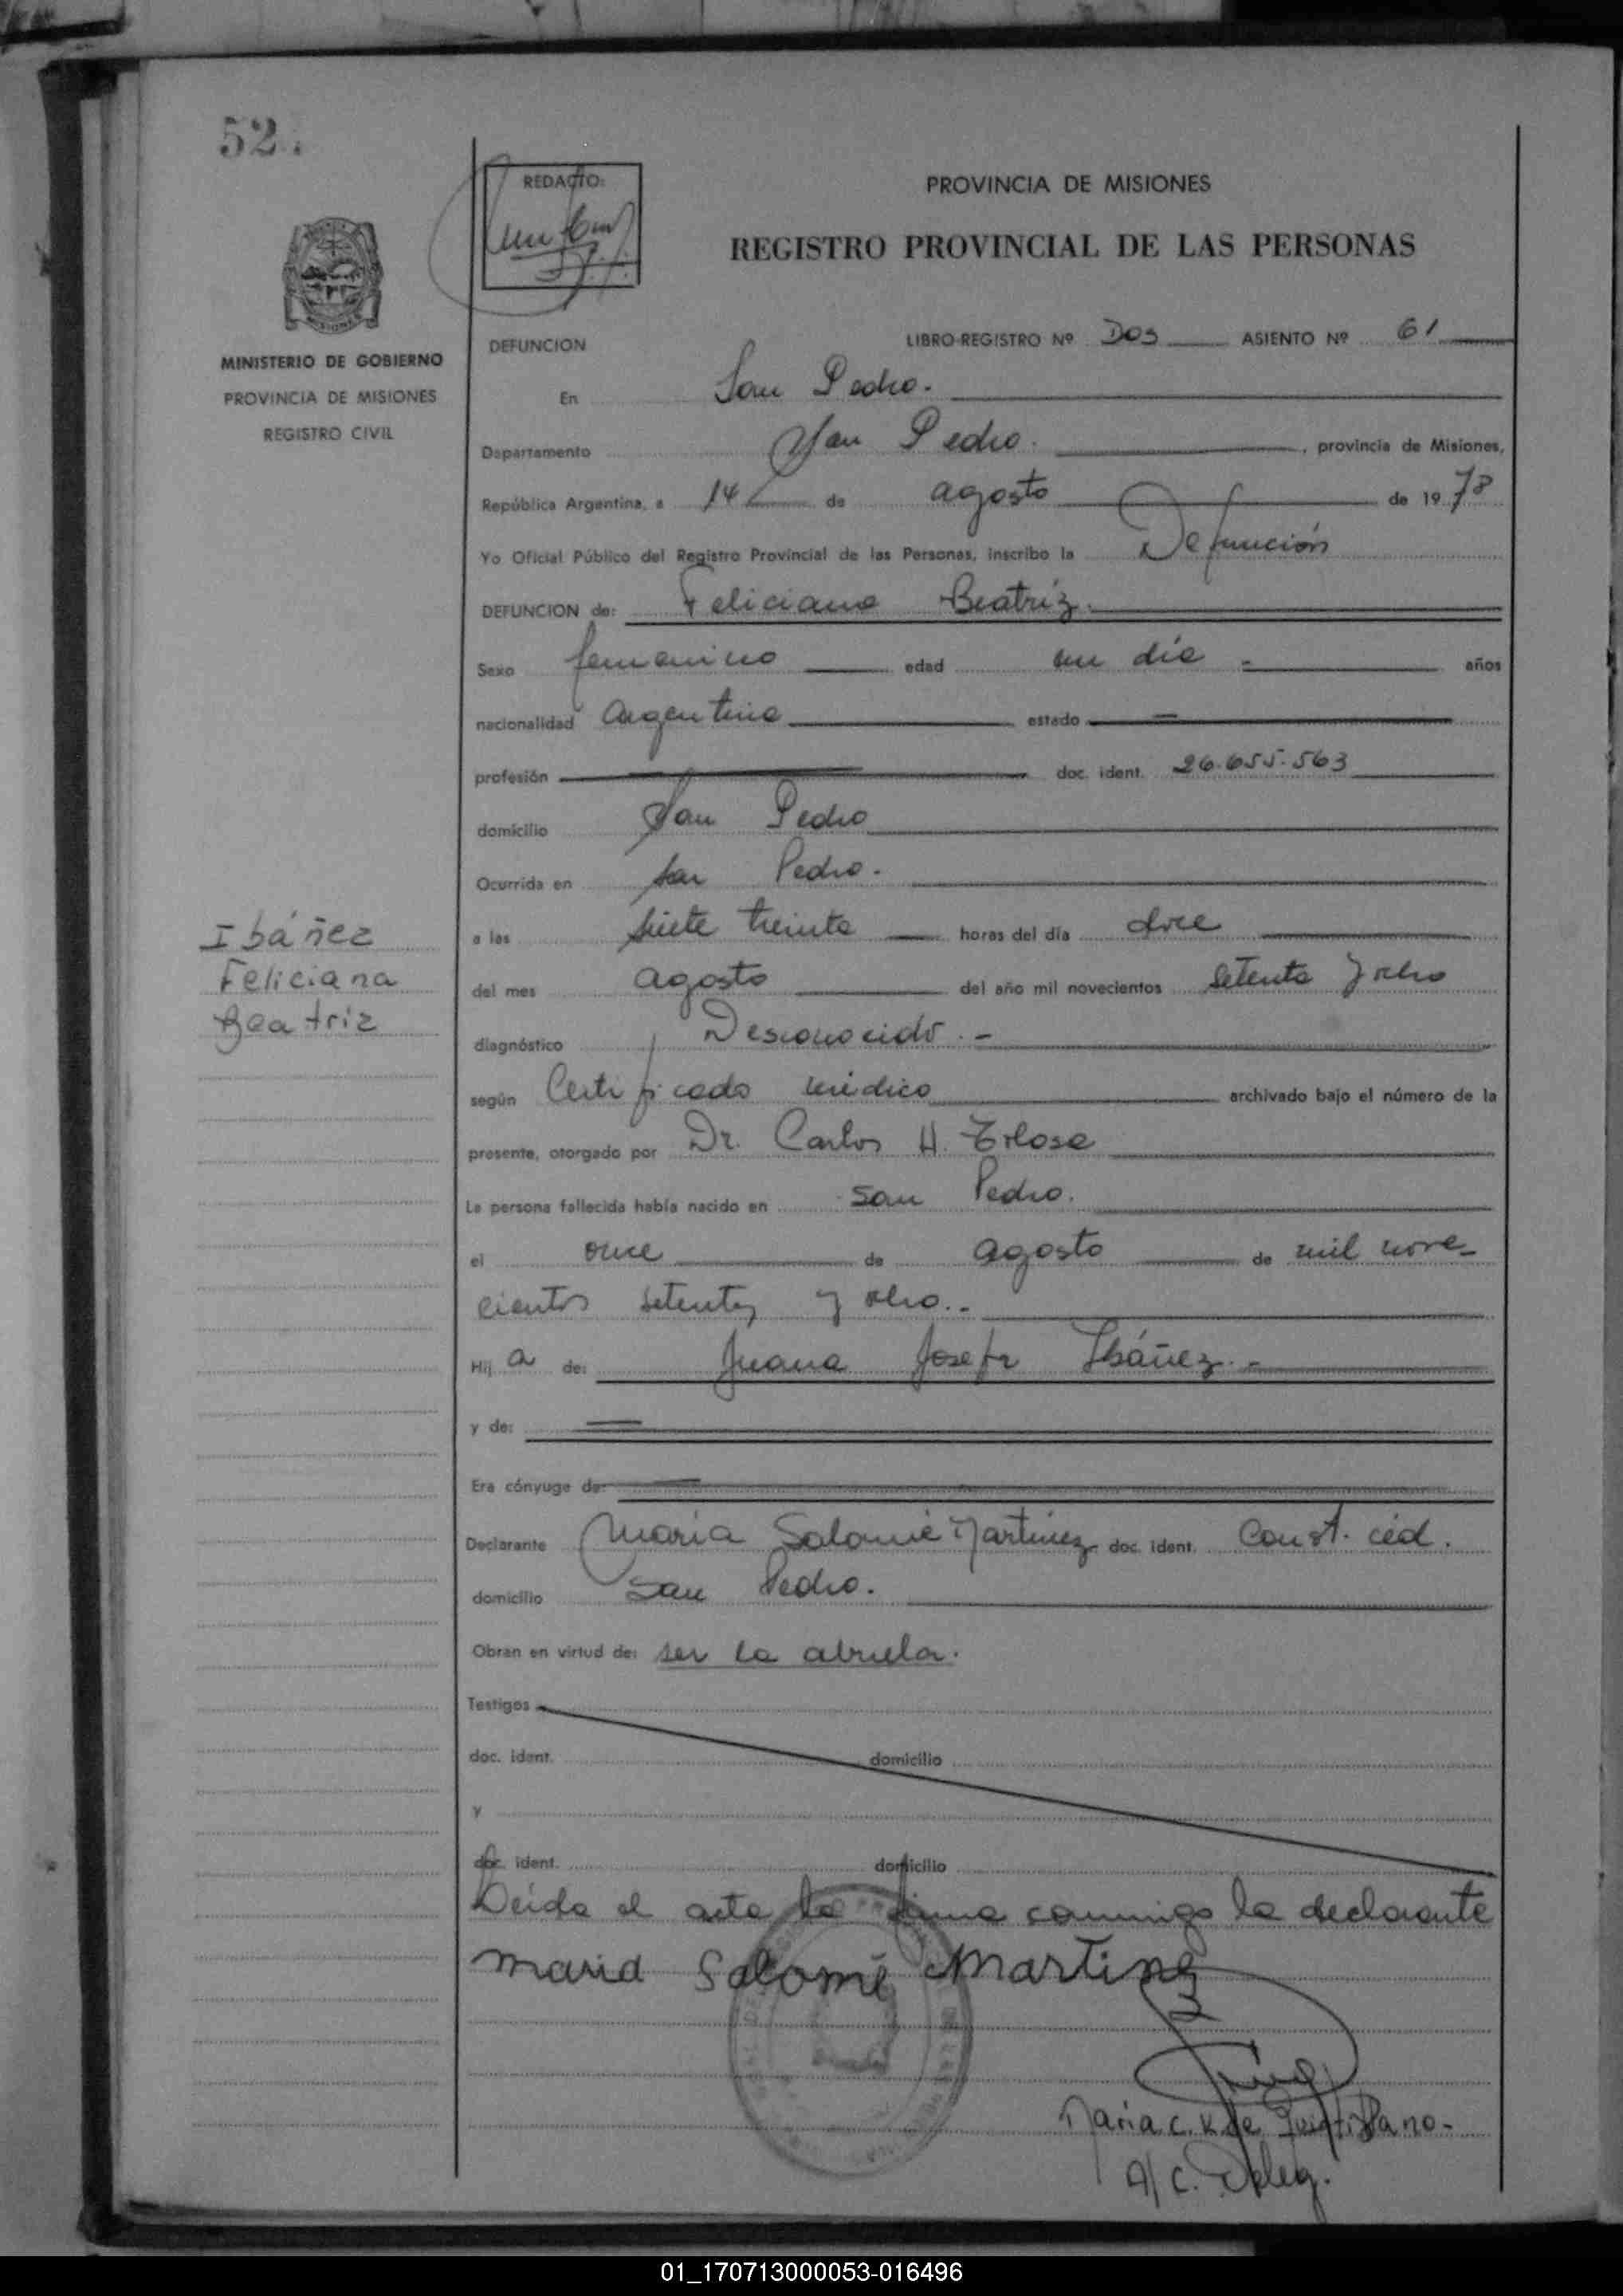 52.
REDACTO:
PROVINCIA DE MISIONES
REGISTRO PROVINCIAL DE LAS PERSONAS
MINISTERIO DE GOBIERNO
PROVINCIA DE MISIONES
REGISTRO CIVIL
DEFUNCION LIBRO-REGISTRO Nº Dos ASIENTO Nº 61
En San Pedro.
Departamento San Pedro. , provincia de Misiones,
República Argentina, a 14 de agosto de 19 78
Yo Oficial Público del Registro Provincial de las Personas, inscribo la Defunción
DEFUNCION de: Feliciana Beatríz.
Sexo femenino edad un día - años
nacionalidad Argentina estado —
profesión — doc. ident. 26.655.563
domicilio San Pedro
Ocurrida en San Pedro.
a las siete treinta horas del día doce
del mes agosto del año mil novecientos setenta y ocho
Ibáñez
Feliciana
Beatriz
diagnóstico Desconocido. -
según Certificado médico archivado bajo el número de la
presente, otorgado por Dr. Carlos H.
La persona fallecida había nacido en San Pedro.
el once de agosto de mil nove-
cientos setenta y ocho..
Hij a de: Juana Josefa Ibáñez. -
y de: —
Era cónyuge de: —
Declarante María Salomé Martínez doc. ident. Const. céd.
domicilio San Pedro.
Obran en virtud de: ser la abuela.
Testigos
doc. ident. domicilio
y
doc. ident. domicilio
Leída el acta la firma conmigo la declarante
Maria Salomé Martinez
Maria C. K. de
A/C. Deleg.
01_170713000053-016496